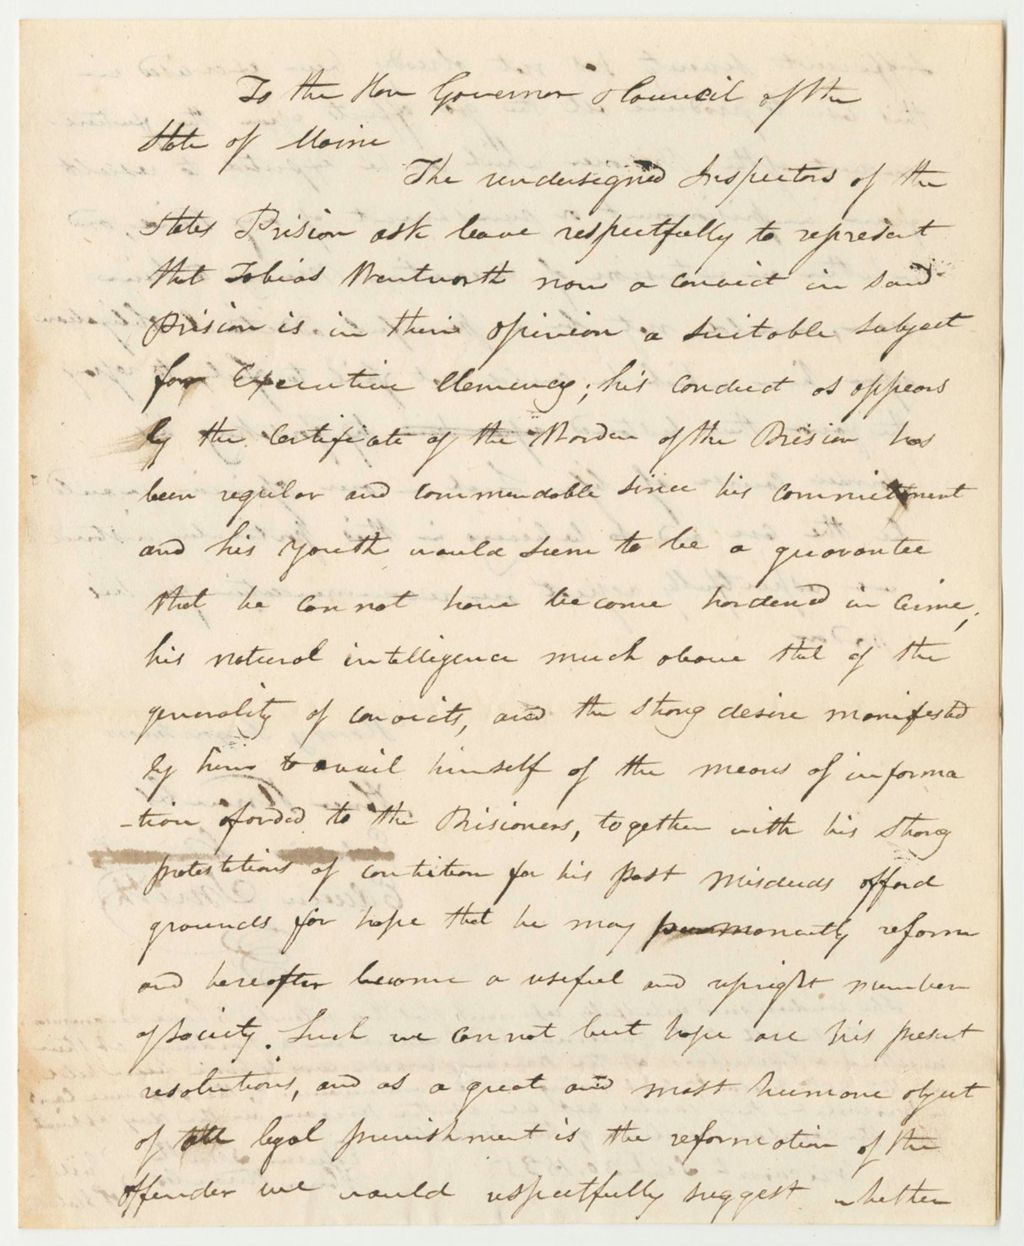 To the Hon Governor & Council of the
State of Maine
The undersigned Inspectors of the
States Prision ask leave respectfully to represent
that Tobias Wentworth now a convict in said
Prision is in their opinion a suitable subject
for Executive Clemency; his conduct as appears
by the Certificate of the Warden of the Prision has
been regular and commendable since his committment
and his youth would seem to be a guarantee
that he can not have become hardened in crime;
his natural intelligence much above that of the
generality of convicts, and the strong desire manifested
by him to avail himself of the means of informa
-tion aforded to the Prisioners, together with his strong
protestations of contrition for his past misdeeds afford
grounds for hope that he may permanently reform
and hereafter become a useful and upright member
of society. Such we can not but hope are his present
resolutions, and as a great and most humane object
of all legal punishment is the reformation of the
offender we would respectfully suggest whether